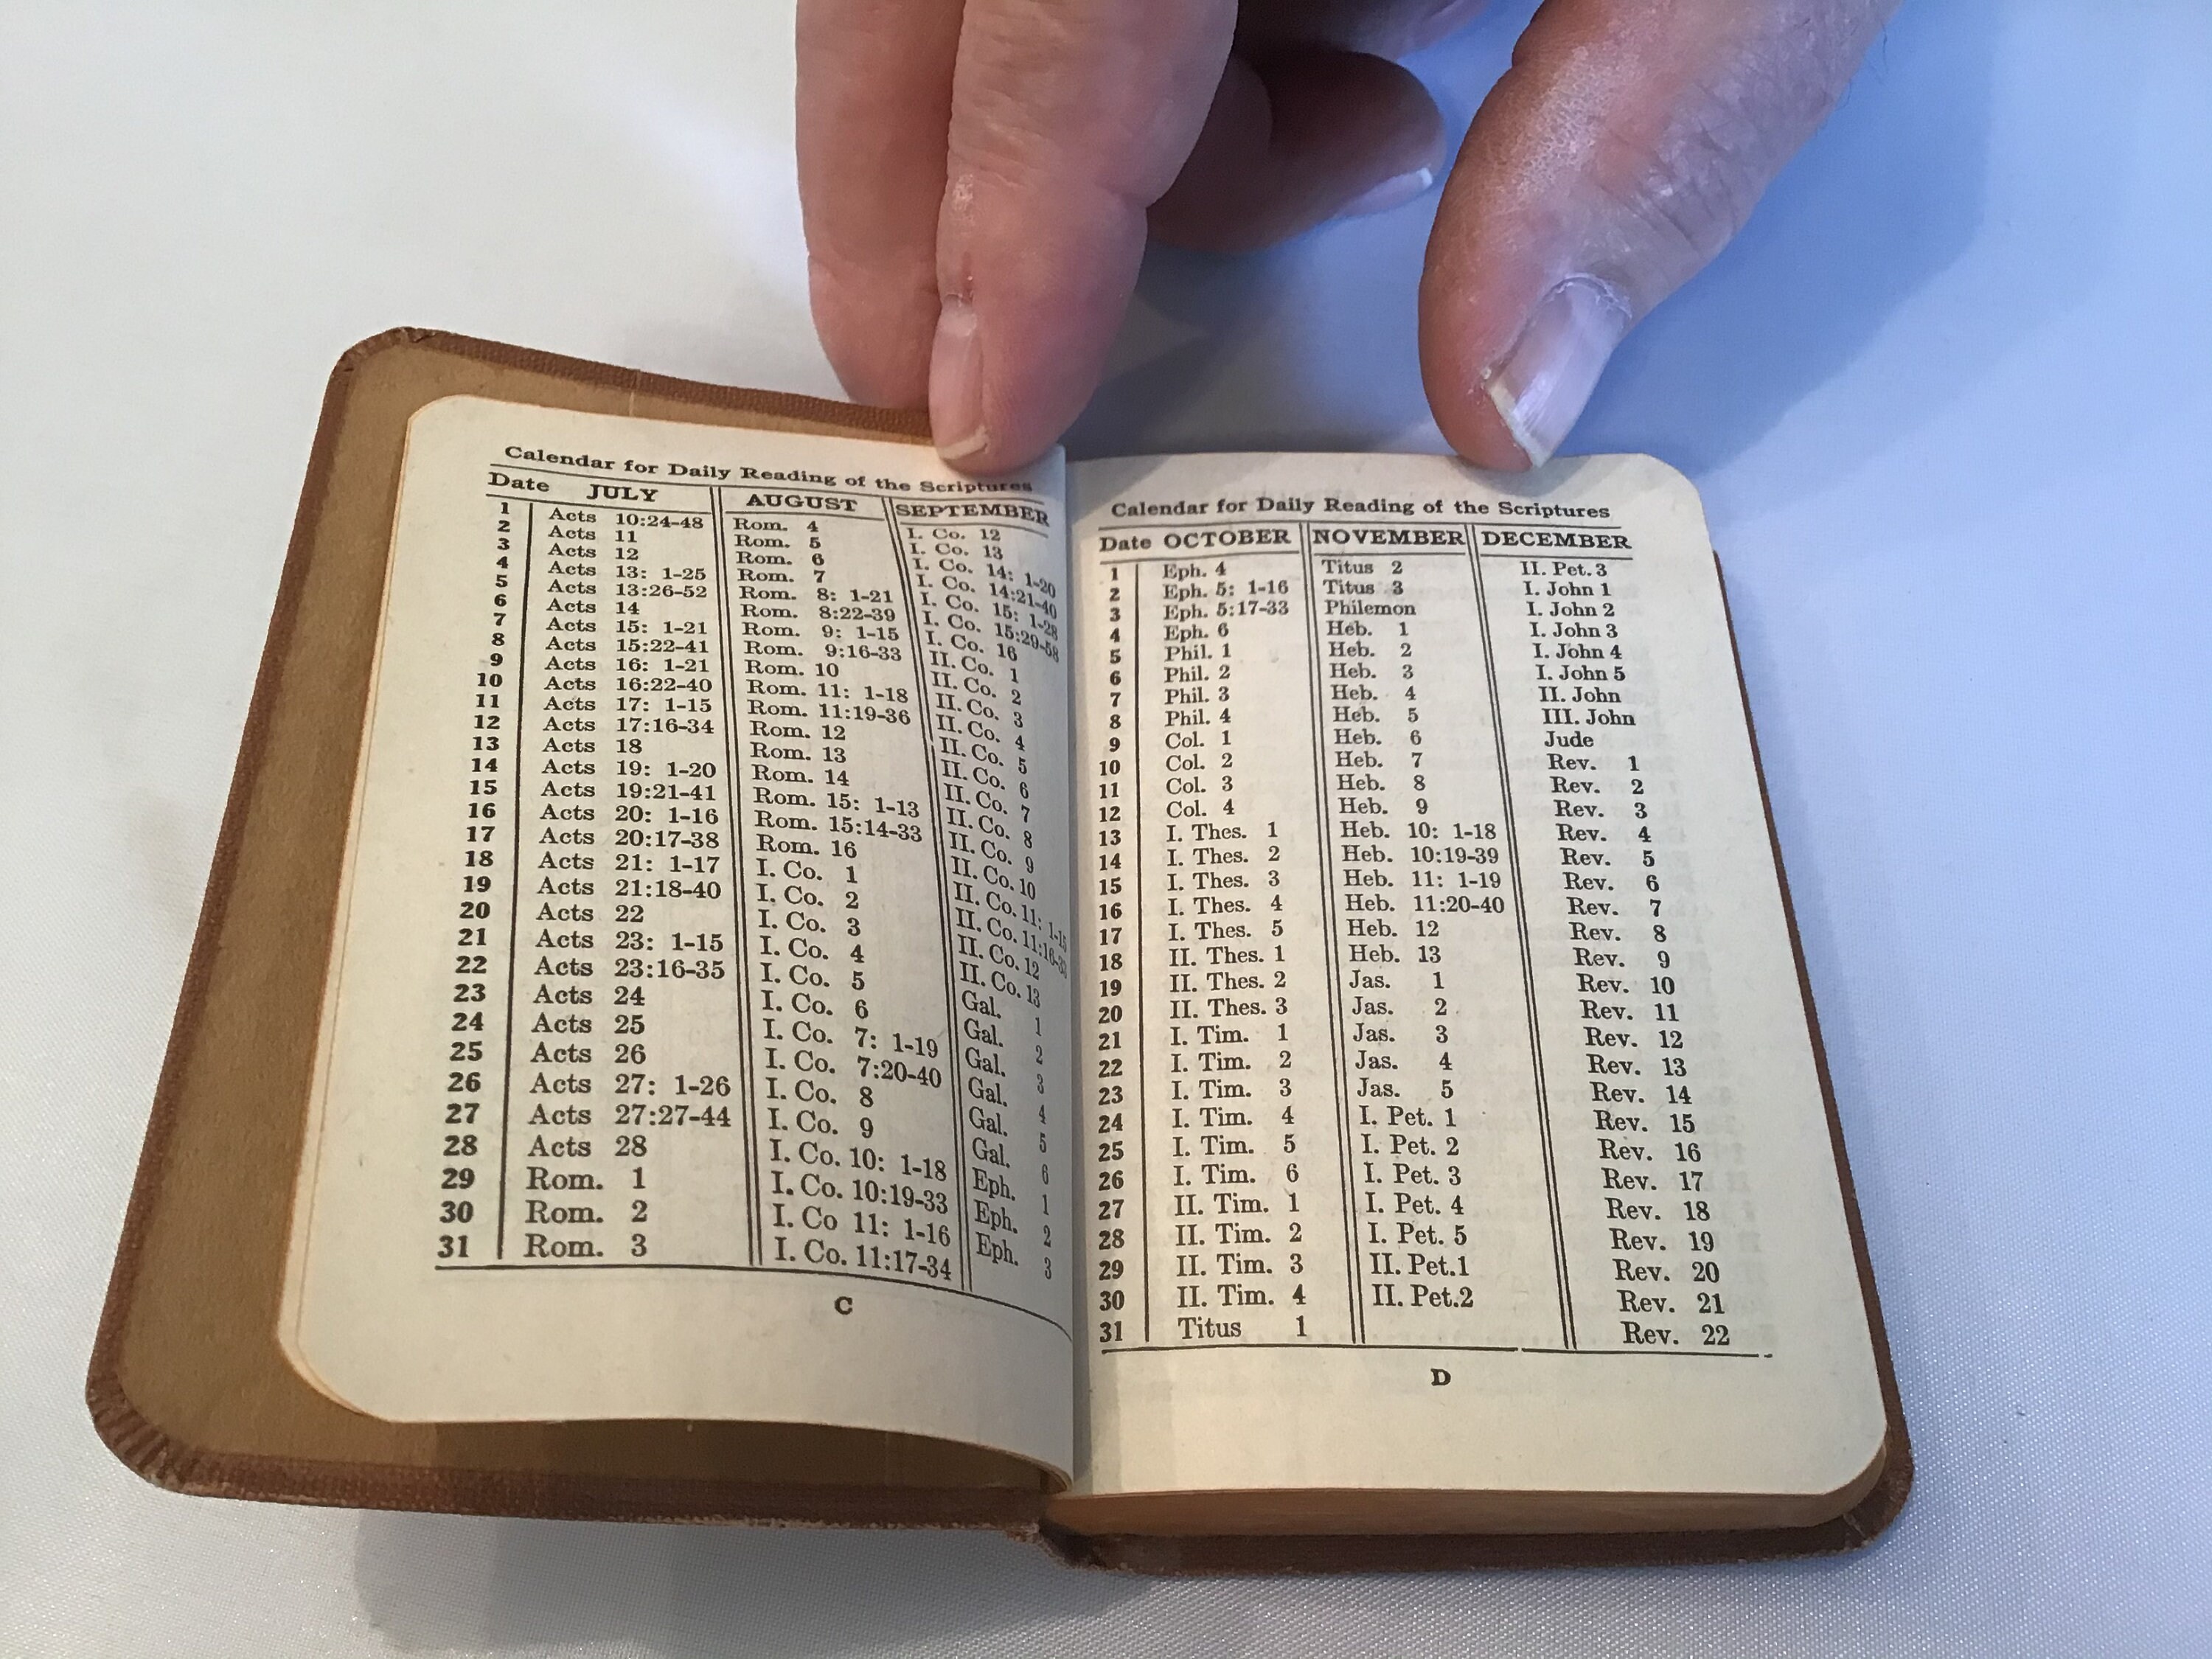 Calendar for Daily Reading of the Scriptures
Date JULY AUGUST SEPTEMBER
1 Acts 10:24-48 Rom. 4 I. Co. 12
2 Acts 11 Rom. 5 I. Co. 13
3 Acts 12 Rom. 6 I. Co. 14: 1-20
4 Acts 13: 1-25 Rom. 7 I. Co. 14:21-40
5 Acts 13:26-52 Rom. 8: 1-21 I. Co. 15: 1-28
6 Acts 14 Rom. 8:22-39 I. Co. 15:29-58
7 Acts 15: 1-21 Rom. 9: 1-15 I. Co. 16
8 Acts 15:22-41 Rom. 9:16-33 II. Co. 1
9 Acts 16: 1-21 Rom. 10 II. Co. 2
10 Acts 16:22-40 Rom. 11: 1-18 II. Co. 3
11 Acts 17: 1-15 Rom. 11:19-36 II. Co. 4
12 Acts 17:16-34 Rom. 12 II. Co. 5
13 Acts 18 Rom. 13 II. Co. 6
14 Acts 19: 1-20 Rom. 14 II. Co. 7
15 Acts 19:21-41 Rom. 15: 1-13 II. Co. 8
16 Acts 20: 1-16 Rom. 15:14-33 II. Co. 9
17 Acts 20:17-38 Rom. 16 II. Co. 10
18 Acts 21: 1-17 I. Co. 1 II. Co. 11: 1-15
19 Acts 21:18-40 I. Co. 2 II. Co. 11:16-33
20 Acts 22 I. Co. 3 II. Co. 12
21 Acts 23: 1-15 I. Co. 4 II. Co. 13
22 Acts 23:16-35 I. Co. 5 Gal. 1
23 Acts 24 I. Co. 6 Gal. 2
24 Acts 25 I. Co. 7: 1-19 Gal. 3
25 Acts 26 I. Co. 7:20-40 Gal. 4
26 Acts 27: 1-26 I. Co. 8 Gal. 5
27 Acts 27:27-44 I. Co. 9 Gal. 6
28 Acts 28 I. Co. 10: 1-18 Eph. 1
29 Rom. 1 I. Co. 10:19-33 Eph. 2
30 Rom. 2 I. Co 11: 1-16 Eph. 3
31 Rom. 3 I. Co. 11:17-34
C
Calendar for Daily Reading of the Scriptures
Date OCTOBER NOVEMBER DECEMBER
1 Eph. 4 Titus 2 II. Pet. 3
2 Eph. 5: 1-16 Titus 3 I. John 1
3 Eph. 5:17-33 Philemon I. John 2
4 Eph. 6 Heb. 1 I. John 3
5 Phil. 1 Heb. 2 I. John 4
6 Phil. 2 Heb. 3 I. John 5
7 Phil. 3 Heb. 4 II. John
8 Phil. 4 Heb. 5 III. John
9 Col. 1 Heb. 6 Jude
10 Col. 2 Heb. 7 Rev. 1
11 Col. 3 Heb. 8 Rev. 2
12 Col. 4 Heb. 9 Rev. 3
13 I. Thes. 1 Heb. 10: 1-18 Rev. 4
14 I. Thes. 2 Heb. 10:19-39 Rev. 5
15 I. Thes. 3 Heb. 11: 1-19 Rev. 6
16 I. Thes. 4 Heb. 11:20-40 Rev. 7
17 I. Thes. 5 Heb. 12 Rev. 8
18 II. Thes. 1 Heb. 13 Rev. 9
19 II. Thes. 2 Jas. 1 Rev. 10
20 II. Thes. 3 Jas. 2 Rev. 11
21 I. Tim. 1 Jas. 3 Rev. 12
22 I. Tim. 2 Jas. 4 Rev. 13
23 I. Tim. 3 Jas. 5 Rev. 14
24 I. Tim. 4 I. Pet. 1 Rev. 15
25 I. Tim. 5 I. Pet. 2 Rev. 16
26 I. Tim. 6 I. Pet. 3 Rev. 17
27 II. Tim. 1 I. Pet. 4 Rev. 18
28 II. Tim. 2 I. Pet. 5 Rev. 19
29 II. Tim. 3 II. Pet.1 Rev. 20
30 II. Tim. 4 II. Pet.2 Rev. 21
31 Titus 1 Rev. 22
D